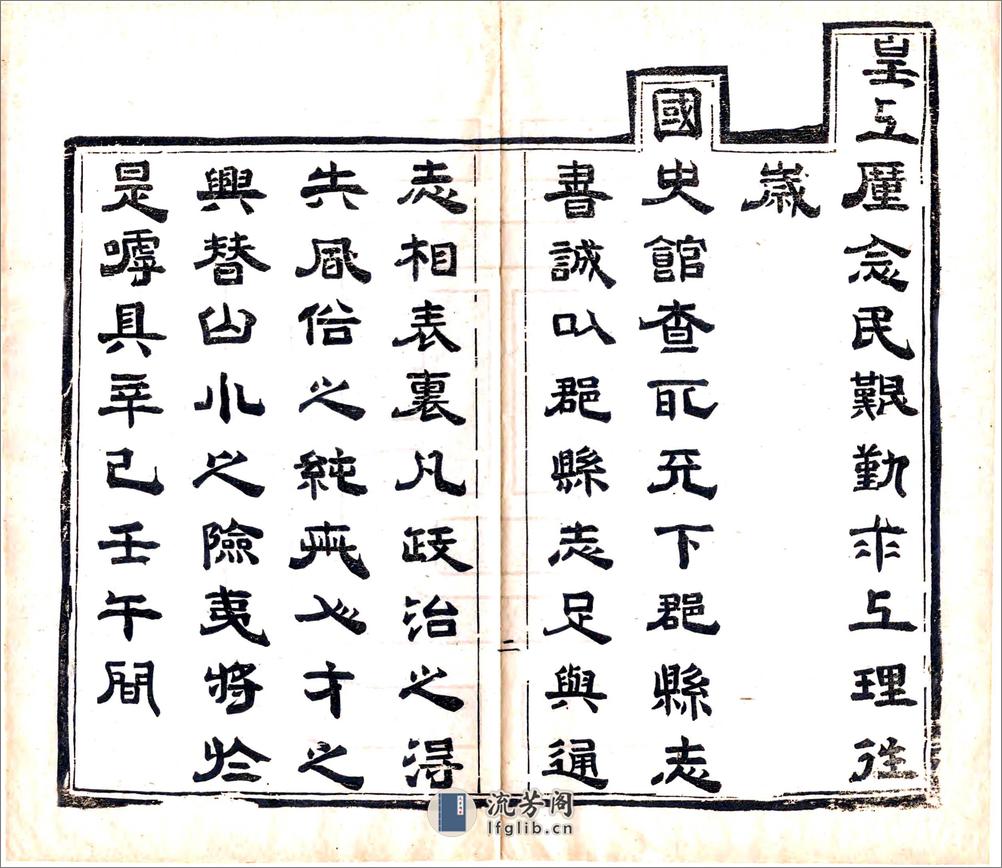 皇上厪念民艱勤求上理往
歲
國史館查取天下郡縣志
書誠以郡縣志足與通
二
志相表裏凡政治之得
失風俗之純人才之
興替山水之險夷將於
是嘑具辛巳壬午間
流芳阁
lfglib.cn